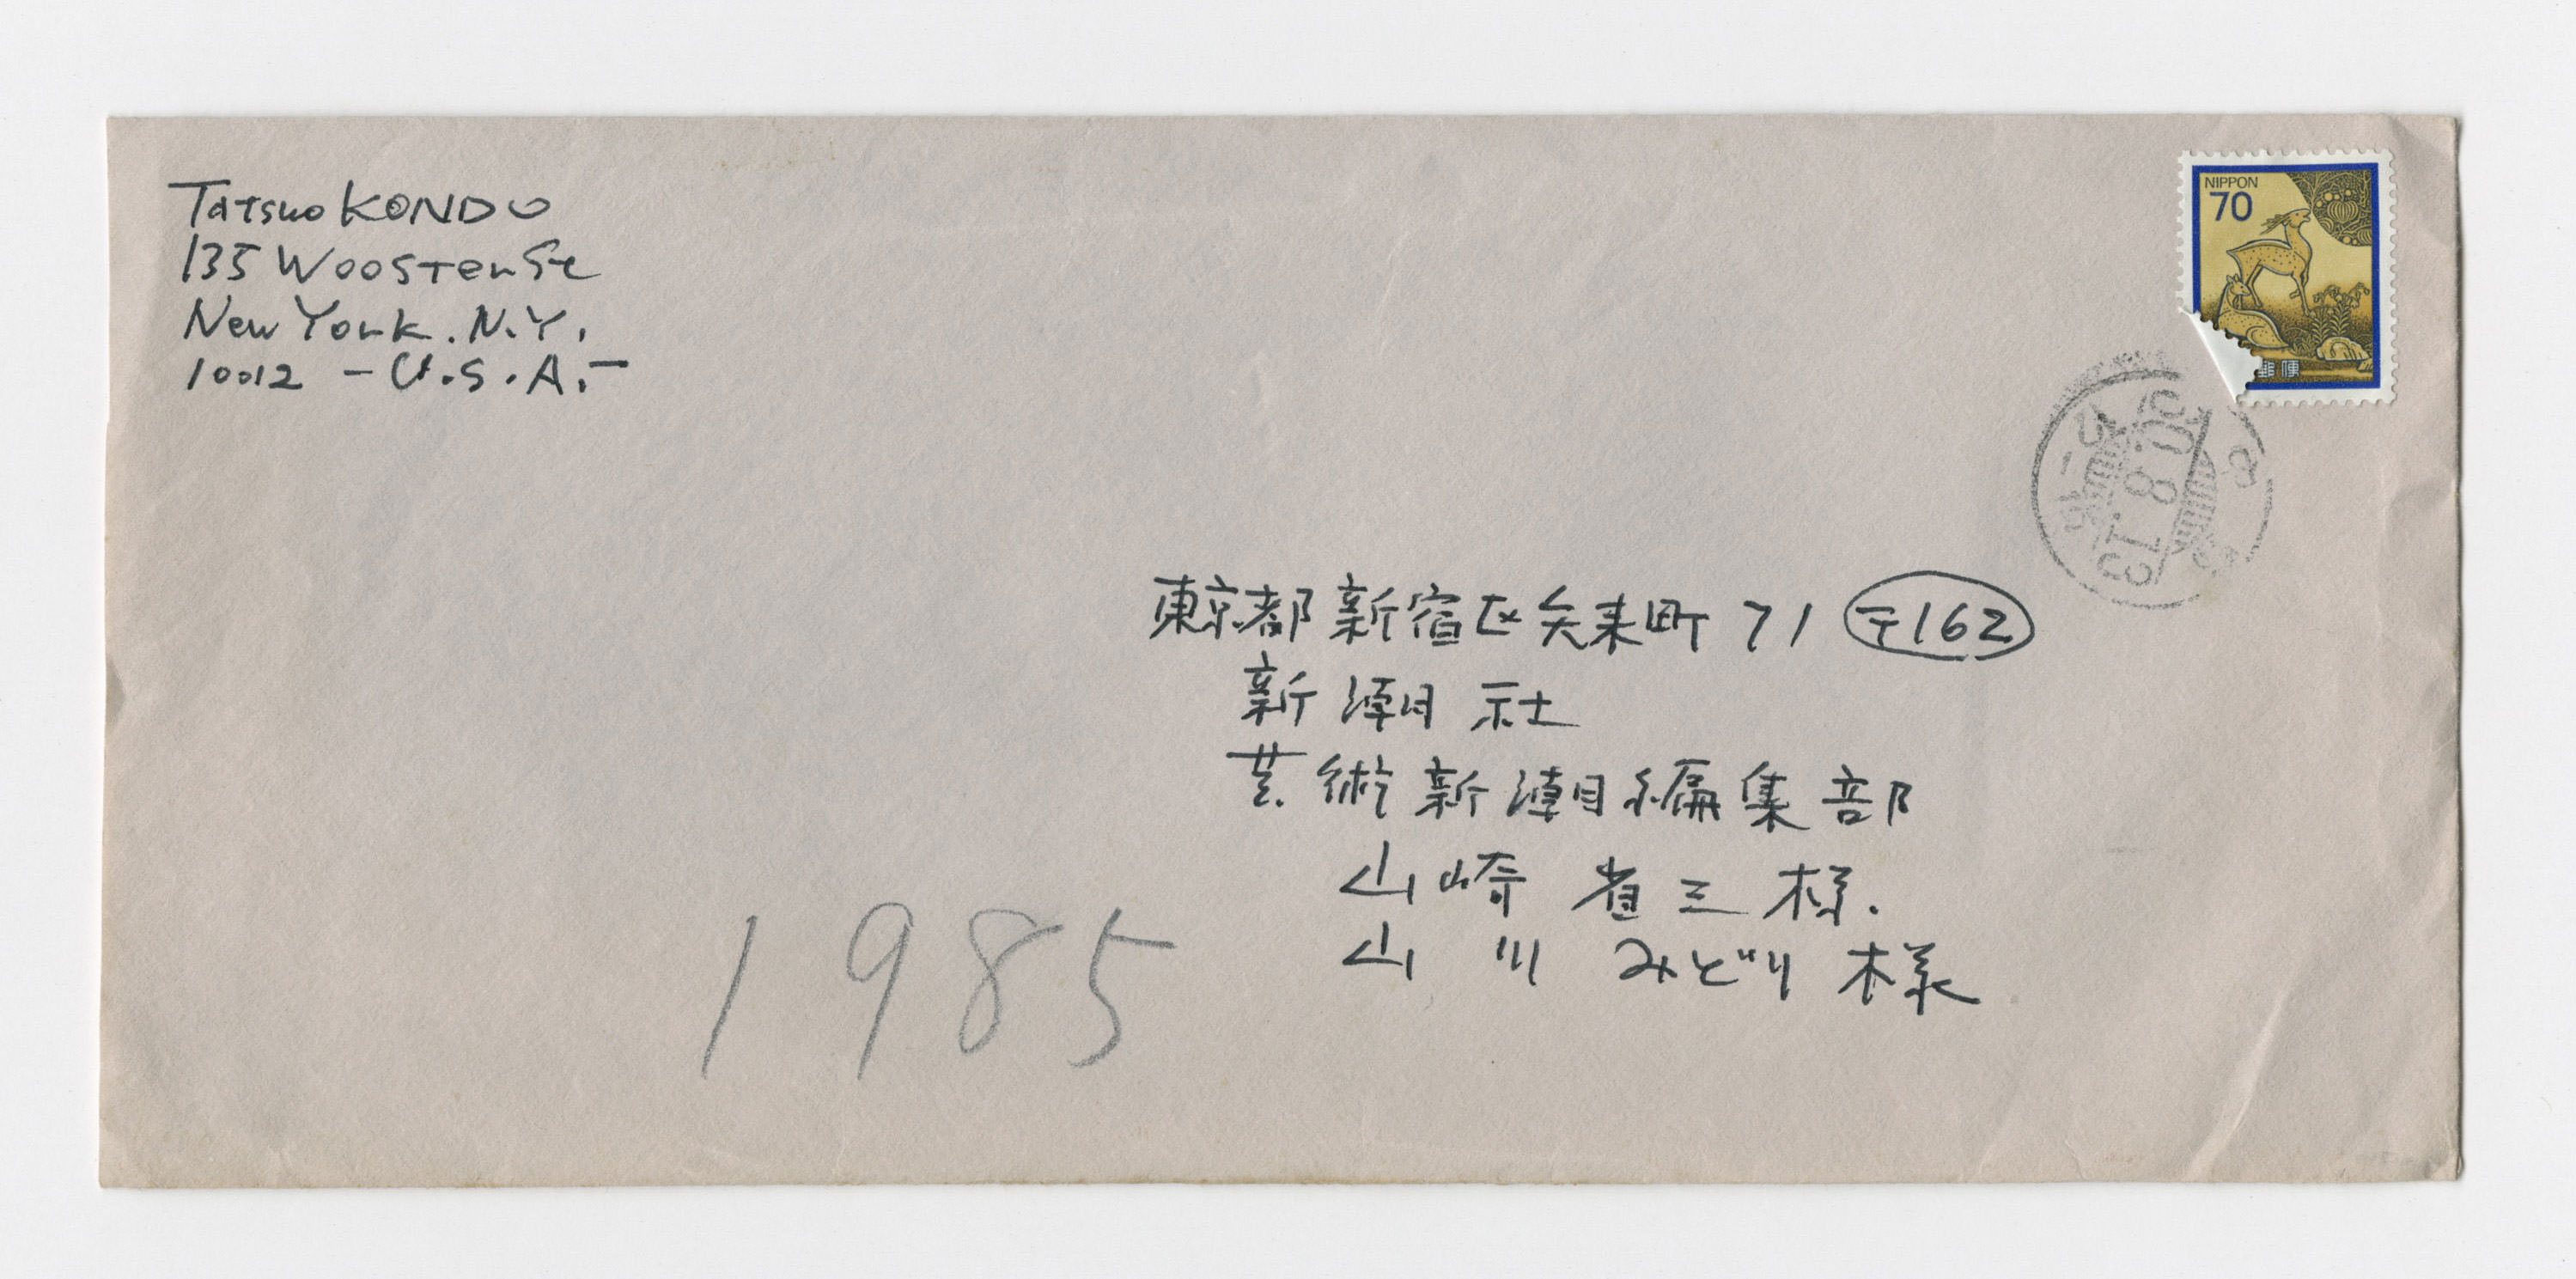 Tatsuo KONDO
135 Wooster St
New York. N.Y.
10012 - U.S.A.-
NIPPON
70
郵便
東京都新宿区矢来町71 〒162
新潮社
芸術新潮編集部
山崎省三様.
山川みどり様
1985